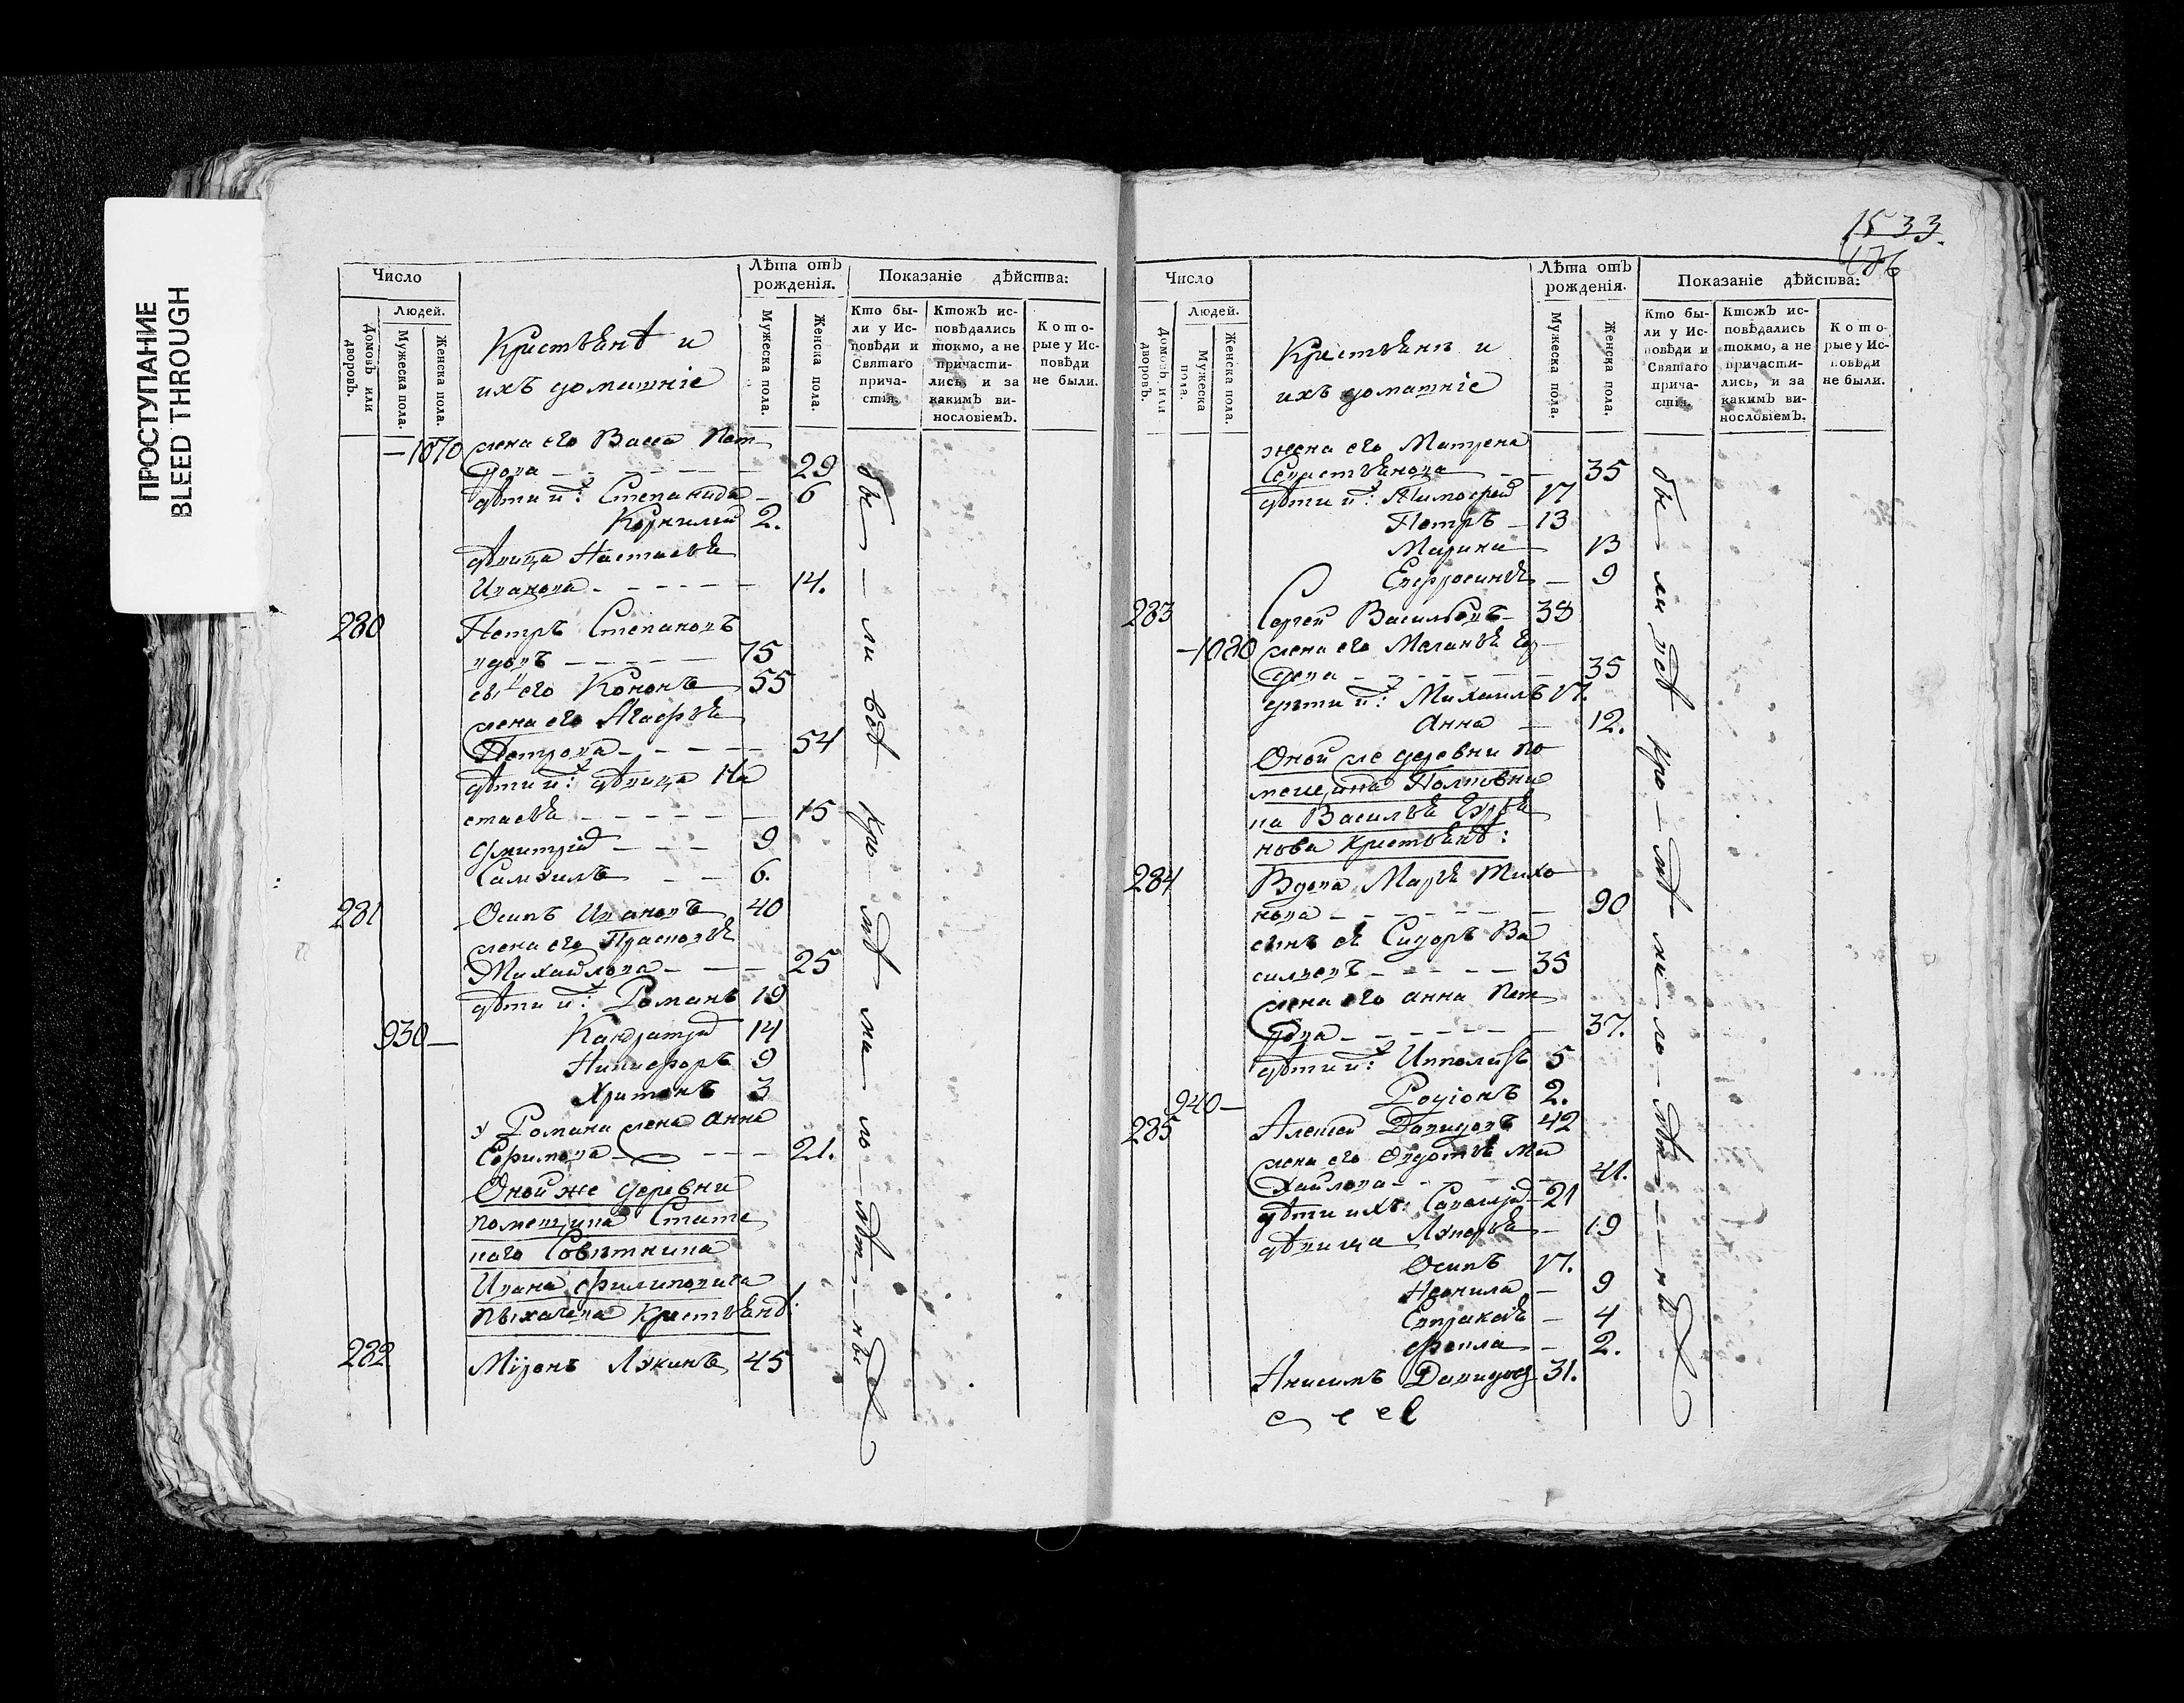 ПРОСТУПАНИЕ
BLEED THROUGH
Число
Людей.
Домовъ или дворовъ.
Мужеска пола.
Женска пола.
Кристьянѣ и
ихъ домашніе
Лѣта отъ рожденія.
Мужеска пола.
Женска пола.
Показаніе дѣйства:
Кто были у Исповѣди и Святаго причастія.
Ктожъ исповѣдались токмо, а не причастились, и за какимъ винословіемъ.
Которые у Исповѣди не были.
1070 жена его Васса Пет
рова 29
дѣти их: Степанида 6
Корнилий 2.
дѣвица Настасья
Иванова 14.
280 Петръ Степановъ
вдовъ 75
сынъ его Кононъ 55
жена его Агафья
Петрова 54
дѣти их: дѣвица На
стасья 15
Дмитрій 9
Самоилъ 6.
281 Осипъ Ивановъ 40
жена его Прасковья
Михайлова 25
дѣти их: Романъ 19
930 Кандратій 14
Никифоръ 9
Харитонъ 3
у Романа жена Анна
Ефимова 21.
Оной же деревни
помещика Статс
каго Советника
Ивана Филиповича
Кристьянѣ:
282 Міронъ Лукинъ 45
были всѣ
1533
186
Число
Людей.
Домовъ или дворовъ.
Мужеска пола.
Женска пола.
Кристьянѣ и
ихъ домашніе
Лѣта отъ рожденія.
Мужеска пола.
Женска пола.
Показаніе дѣйства:
Кто были у Исповѣди и Святаго причастія.
Ктожъ исповѣдались токмо, а не причастились, и за какимъ винословіемъ.
Которые у Исповѣди не были.
жена его Матрена
Севастьянова 35
дѣти их: Тимофей 17
Петръ 13
Марина 13
Евфросинья 9
283 Сергей Васильевъ 38
1080 жена его Меланья
35
дѣти их: Михаилъ 17.
Анна 12.
Оной же деревни по
мещика Полковни
ка Василья Гурья
нова Кристьянѣ:
284 Вдова Марья Тихо
нова 90
сынъ ея Сидоръ Ва
сильевъ 35
жена его Анна Пет
рова 37.
дѣти их: Ипполитъ 5
940 Родіонъ 2.
285 Алексей Давидовъ 42
жена его Авдотья Ми
хайлова 41.
дѣти ихъ: 21
дѣвица Лукерья 19
Осипъ 17.
Неонила 9
Евпраксія 4
Фекла 2.
Анисимъ Давидов 31.
были всѣ